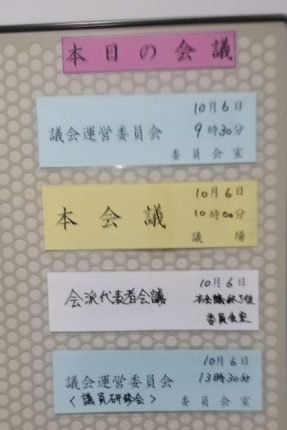 本日の会議
10月6日
議会運営委員会
9時30分
委員会室
10月6日
本会議
10時00分
議場
10月6日
会派代表者会議
本会議終了後
委員会室
10月6日
議会運営委員会
13時30分
<議員研修会>
委員会室